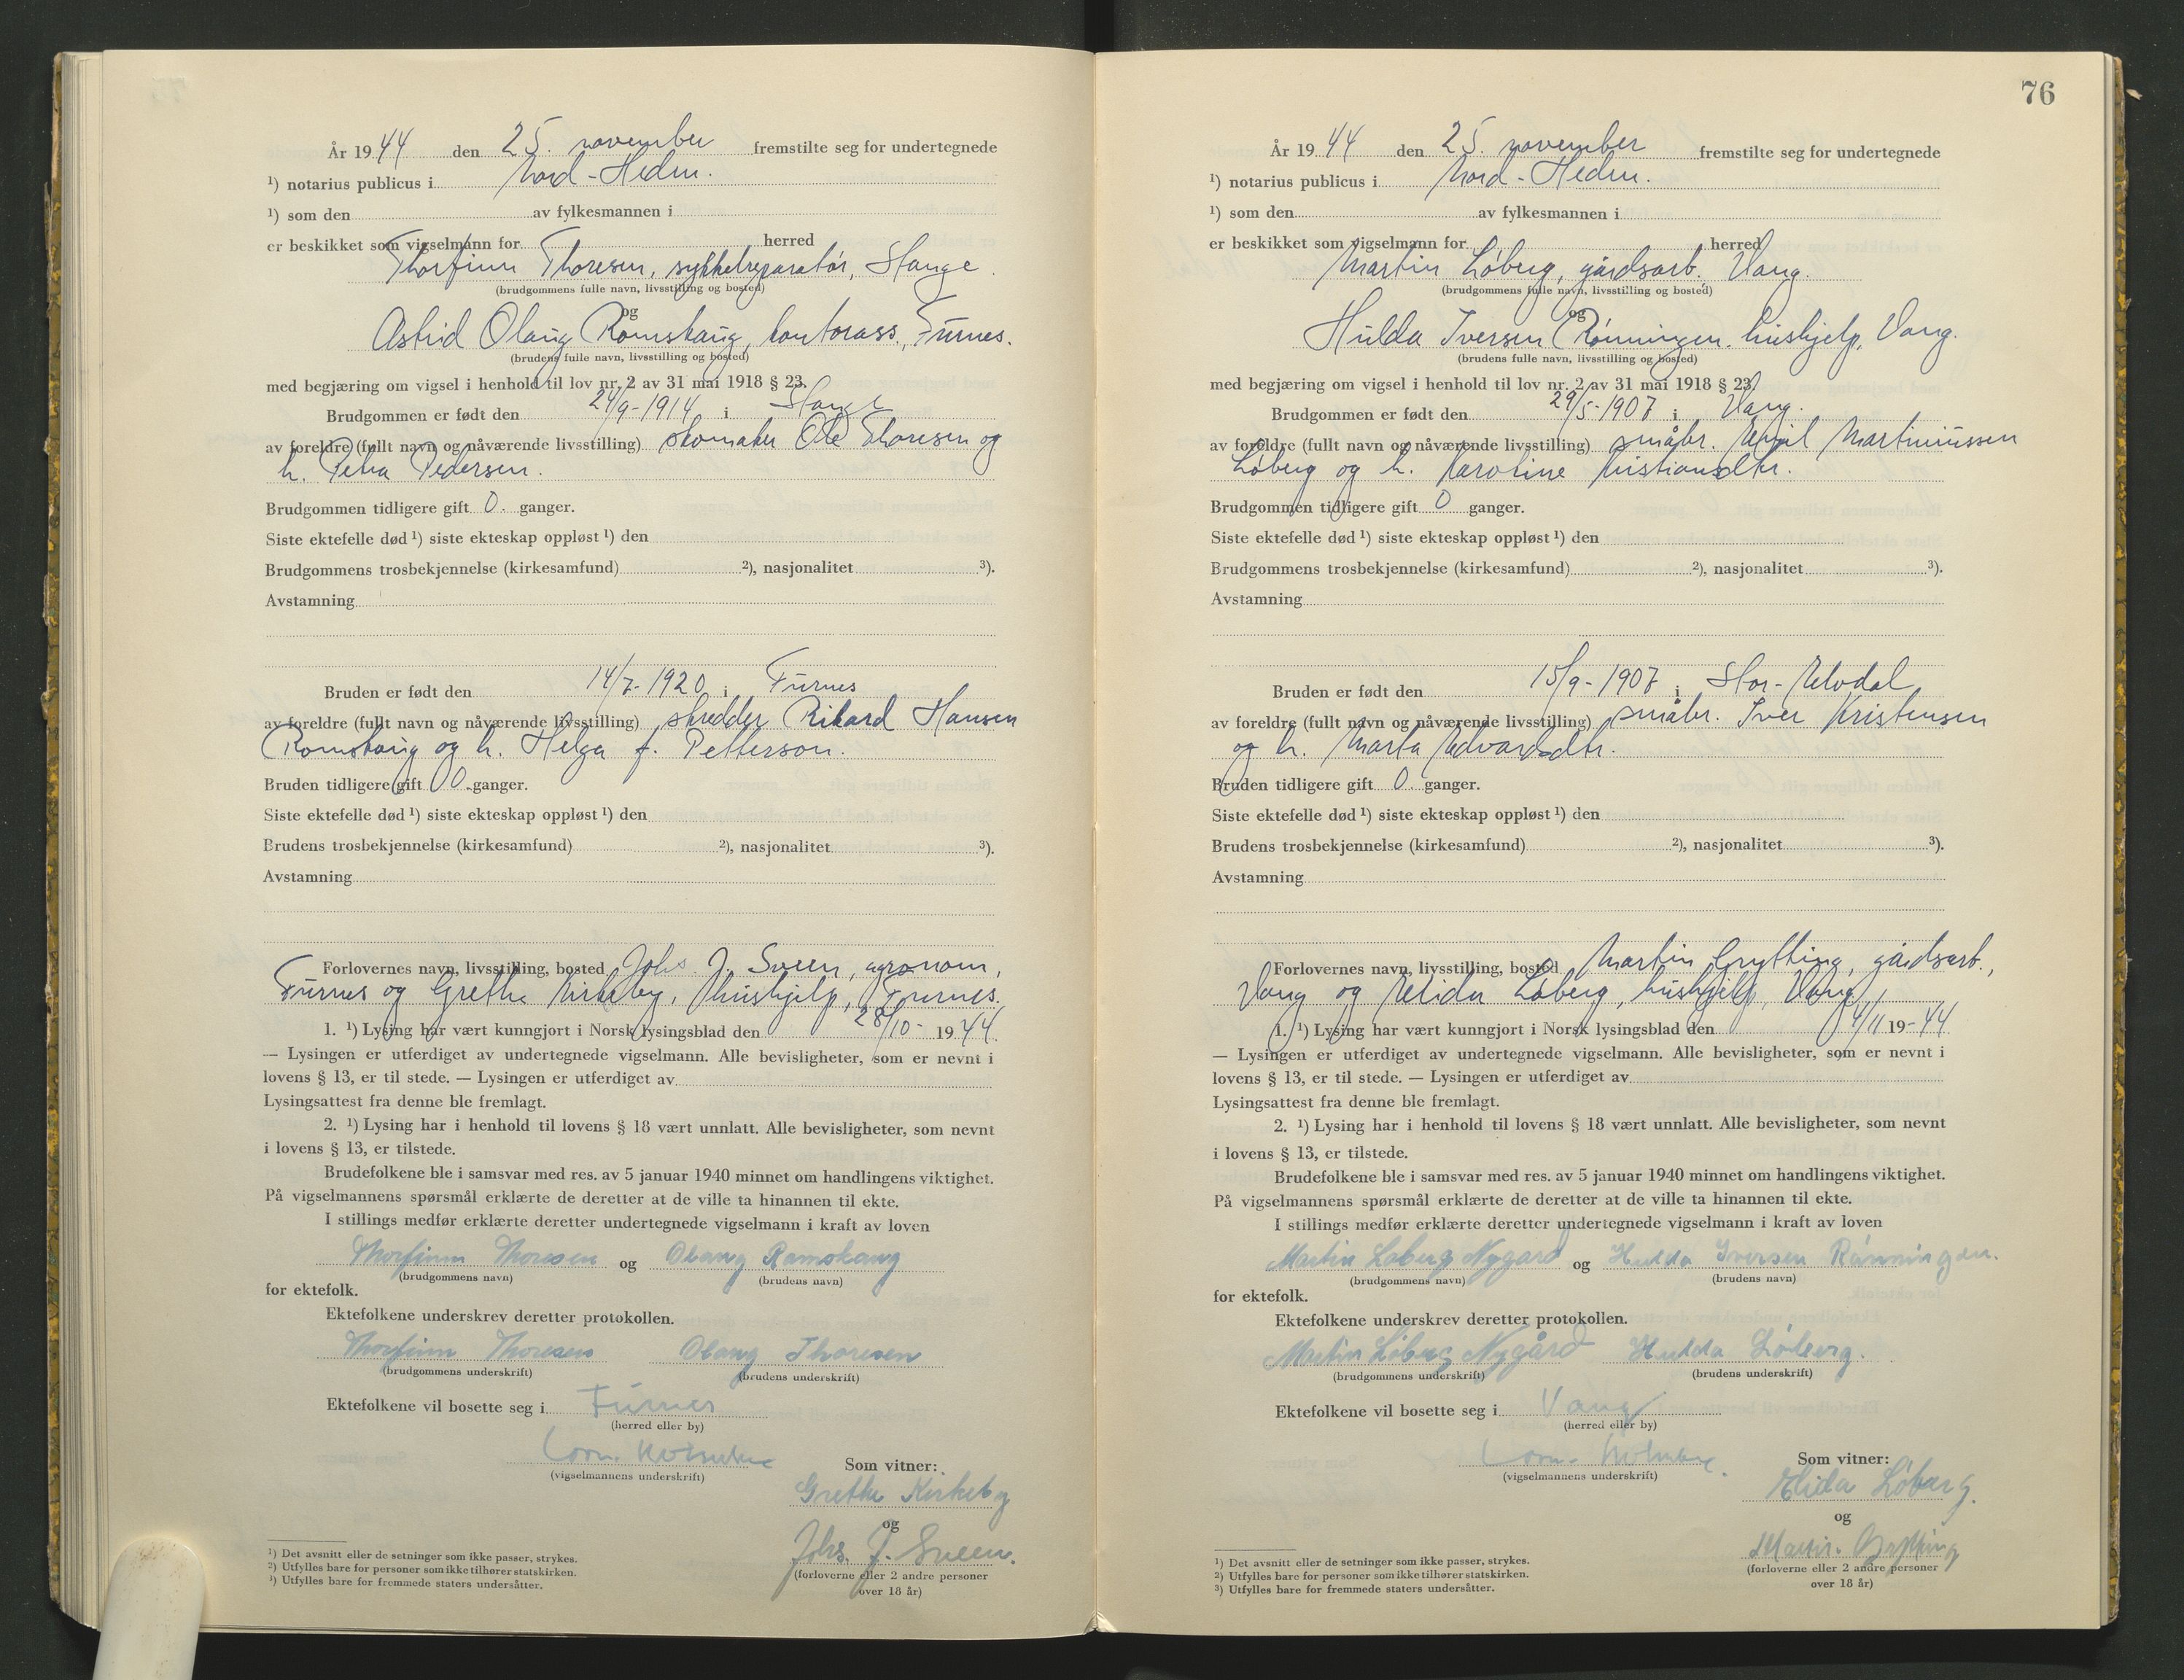 År 1944 den 25. november fremstilte seg for undertegnede
¹) notarius publicus i Nord-Hedm.
¹) som den av fylkesmannen i
er beskikket som vigselmann for herred
Thorfinn Thoresen, sykkelreparatör, Stange.
(brudgommens fulle navn, livsstilling og bosted)
og
Astrid Olaug Romskaug, kontorass., Furnes.
(brudens fulle navn, livsstilling og bosted)
med begjæring om vigsel i henhold til lov nr. 2 av 31 mai 1918 § 23.
Brudgommen er født den 24/9-1914 i Stange
av foreldre (fullt navn og nåværende livsstilling) skomaker Ole Thoresen og
h. Petra Pedersen.
Brudgommen tidligere gift 0. ganger.
Siste ektefelle død ¹) siste ekteskap oppløst ¹) den
Brudgommens trosbekjennelse (kirkesamfund) ²), nasjonalitet ³).
Avstamning
Bruden er født den 14/7-1920 i Furnes
av foreldre (fullt navn og nåværende livsstilling) skredder Rikard Hansen
Romskaug og h. Helga f. Petterson.
Bruden tidligere gift 0 ganger.
Siste ektefelle død ¹) siste ekteskap oppløst ¹) den
Brudens trosbekjennelse (kirkesamfund) ²), nasjonalitet ³).
Avstamning
Forlovernes navn, livsstilling, bosted Johs. J. Sveen, agronom,
Furnes og Grethe Kirkeby, hushjelp, Furnes.
1. ¹) Lysing har vært kunngjort i Norsk lysingsblad den 28/10- 1944.
— Lysingen er utferdiget av undertegnede vigselmann. Alle bevisligheter, som er nevnt i
lovens § 13, er til stede. — Lysingen er utferdiget av
Lysingsattest fra denne ble fremlagt.
2. ¹) Lysing har i henhold til lovens § 18 vært unnlatt. Alle bevisligheter, som nevnt
i lovens § 13, er tilstede.
Brudefolkene ble i samsvar med res. av 5 januar 1940 minnet om handlingens viktighet.
På vigselmannens spørsmål erklærte de deretter at de ville ta hinannen til ekte.
I stillings medfør erklærte deretter undertegnede vigselmann i kraft av loven
Thorfinn Thoresen og Olaug Romskaug
(brudgommens navn) (brudens navn)
for ektefolk.
Ektefolkene underskrev deretter protokollen.
Thorfinn Thoresen Olaug Thoresen
(brudgommens underskrift) (brudens underskrift)
Ektefolkene vil bosette seg i Furnes
(herred eller by)
(vigselmannens underskrift)
Som vitner:
Grethe Kirkeby
og
Johs. J. Sveen.
(forloverne eller 2 andre personer
over 18 år)
¹) Det avsnitt eller de setninger som ikke passer, strykes.
²) Utfylles bare for personer som ikke tilhører statskirken.
³) Utfylles bare for fremmede staters undersåtter.
76
År 1944 den 25. november fremstilte seg for undertegnede
¹) notarius publicus i Nord-Hedm.
¹) som den av fylkesmannen i
er beskikket som vigselmann for herred
Martin Löberg, gårdsarb. Vang.
(brudgommens fulle navn, livsstilling og bosted)
og
Hulda Iversen Rönningen, hushjelp, Vang.
(brudens fulle navn, livsstilling og bosted)
med begjæring om vigsel i henhold til lov nr. 2 av 31 mai 1918 § 23.
Brudgommen er født den 29/5-1907 i Vang.
av foreldre (fullt navn og nåværende livsstilling) småbr. Emil Martiniussen
Löberg og h. Karoline Kristiansdtr.
Brudgommen tidligere gift 0 ganger.
Siste ektefelle død ¹) siste ekteskap oppløst ¹) den
Brudgommens trosbekjennelse (kirkesamfund) ²), nasjonalitet ³).
Avstamning
Bruden er født den 15/9-1907 i Stor-Elvdal
av foreldre (fullt navn og nåværende livsstilling) småbr. Iver Kristensen
og h. Marta Edvardsdtr.
Bruden tidligere gift 0. ganger.
Siste ektefelle død ¹) siste ekteskap oppløst ¹) den
Brudens trosbekjennelse (kirkesamfund) ²), nasjonalitet ³).
Avstamning
Forlovernes navn, livsstilling, bosted Martin Grytting, gårdsarb.,
Vang og Elida Löberg, hushjelp, Vang
1. ¹) Lysing har vært kunngjort i Norsk lysingsblad den 4/11 19-44
— Lysingen er utferdiget av undertegnede vigselmann. Alle bevisligheter, som er nevnt i
lovens § 13, er til stede. — Lysingen er utferdiget av
Lysingsattest fra denne ble fremlagt.
2. ¹) Lysing har i henhold til lovens § 18 vært unnlatt. Alle bevisligheter, som nevnt
i lovens § 13, er tilstede.
Brudefolkene ble i samsvar med res. av 5 januar 1940 minnet om handlingens viktighet.
På vigselmannens spørsmål erklærte de deretter at de ville ta hinannen til ekte.
I stillings medfør erklærte deretter undertegnede vigselmann i kraft av loven
Martin Löberg Nygard og Hulda Iversen Rönningen.
(brudgommens navn) (brudens navn)
for ektefolk.
Ektefolkene underskrev deretter protokollen.
Martin Löberg Nygård Hulda Löberg.
(brudgommens underskrift) (brudens underskrift)
Ektefolkene vil bosette seg i Vang
(herred eller by)
(vigselmannens underskrift)
Som vitner:
Elida Löberg.
og
Martin Grytting
(forloverne eller 2 andre personer
over 18 år)
¹) Det avsnitt eller de setninger som ikke passer, strykes.
²) Utfylles bare for personer som ikke tilhører statskirken.
³) Utfylles bare for fremmede staters undersåtter.